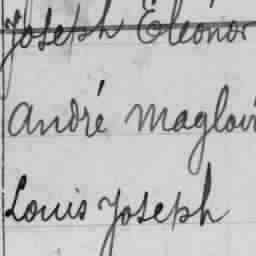 Joseph Eléonor
André Magloi
Louis Joseph